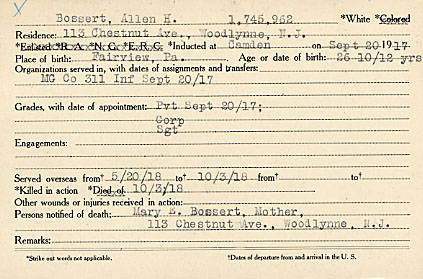 X
Bossert, Allen H. 1,745,962 *White *Colored
Residence: 113 Chestnut Ave., Woodlynne, N.J.
*Enlisted *R. A. *N. G. *E. R. C. *Inducted at Camden on Sept 20 1917
Place of birth: Fairview, Pa. Age or date of birth: 26 10/12 yrs
Organizations served in, with dates of assignments and transfers:
MG Co 311 Inf Sept 20/17
Grades, with date of appointment: Pvt Sept 20/17;
Corp
Sgt
Engagements:
Served overseas from† 5/20/18 to† 10/3/18 from† to†
*Killed in action *Died of 10/3/18
Other wounds or injuries received in action:
Persons notified of death: Mary E. Bossert, Mother,
113 Chestnut Ave., Woodlynne, N.J.
Remarks:
*Strike out words not applicable. †Dates of departure from and arrival in the U. S.